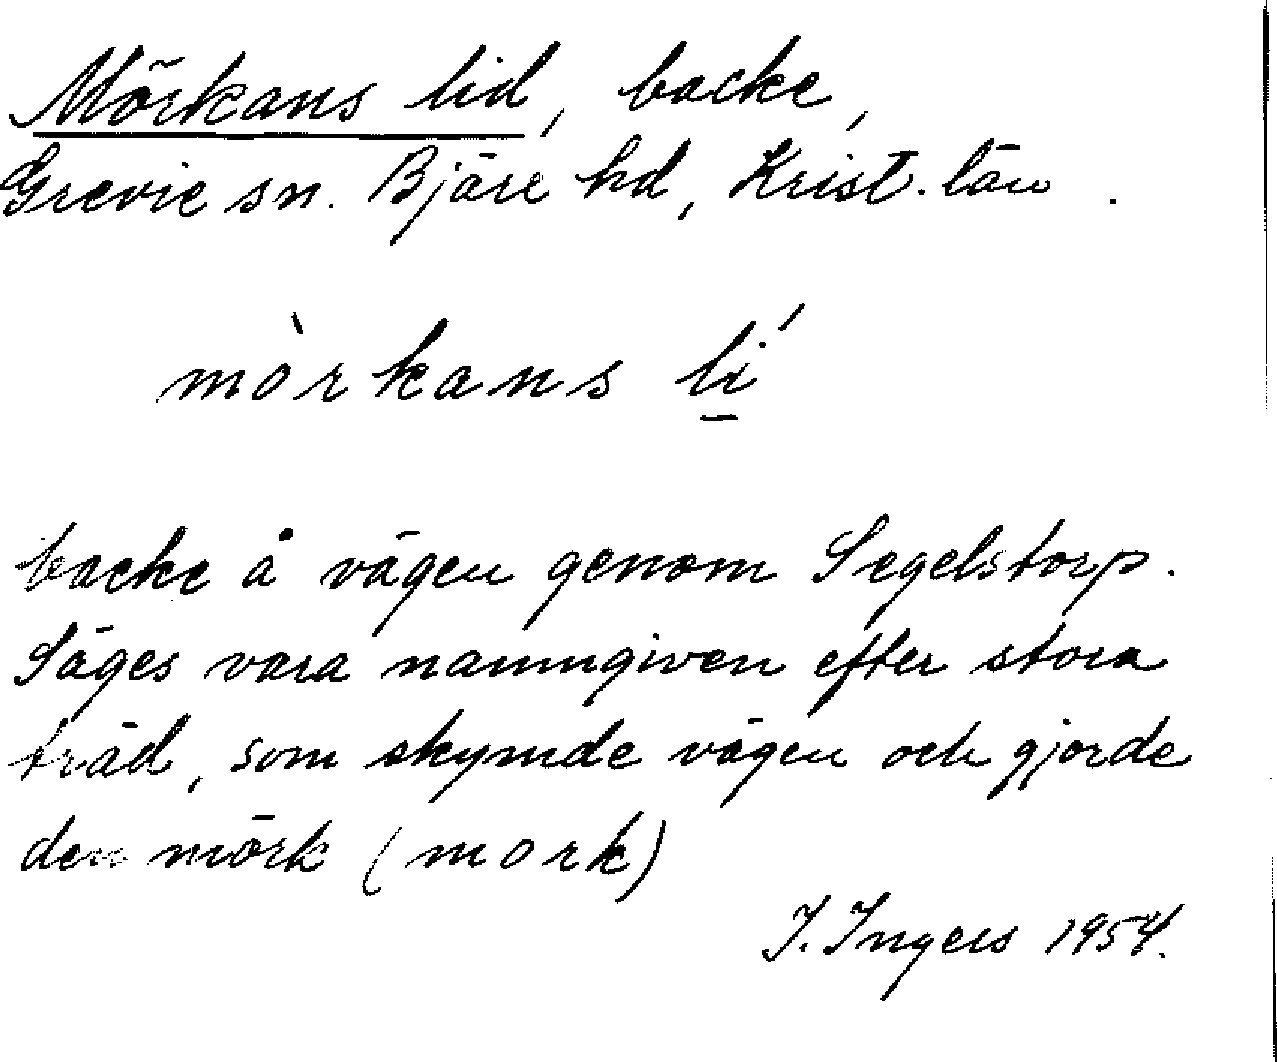 Mörkans lid, backe,
Grevie sn. Bjäre hd, Krist. län.
mòrkans lí
backe å vägen genom Segelstorp.
Säges vara namngiven efter stora
träd, som skymde vägen och gjorde
den mörk (mork)
I. Ingers 1954.